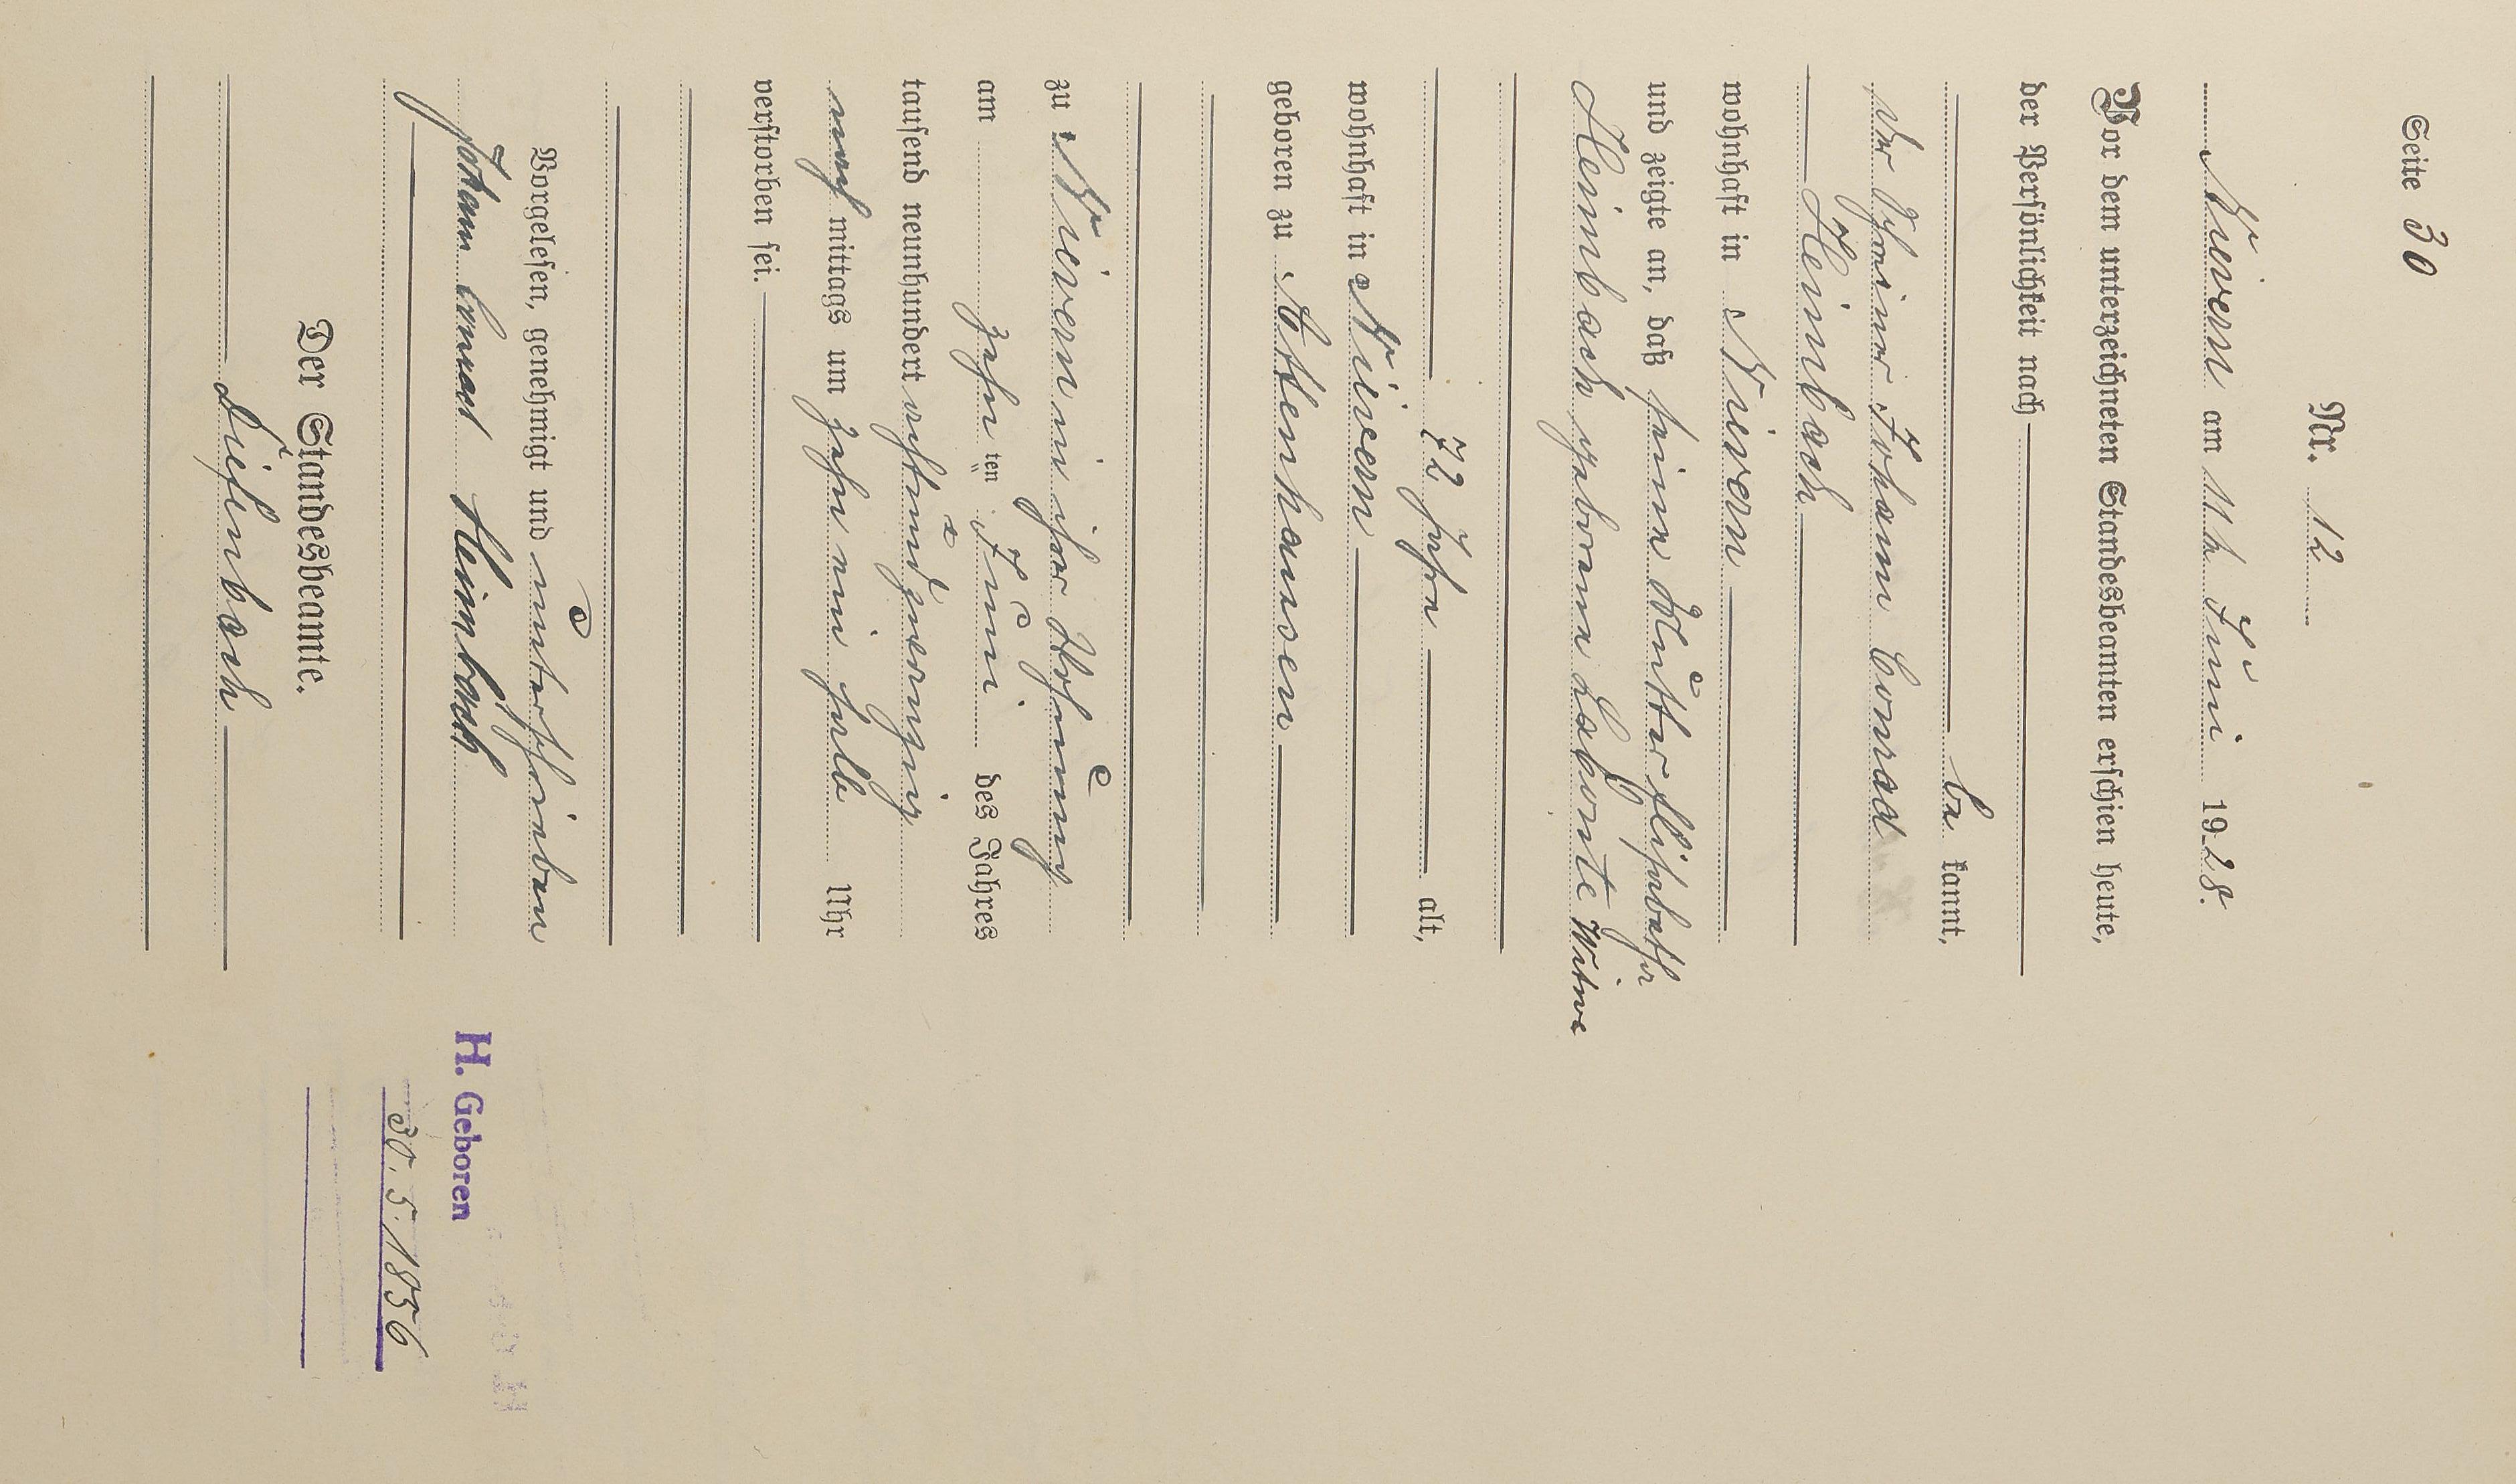 Seite 30
Nr. 12
Nievern am 11t Juni 1928.
Vor dem unterzeichneten Standesbeamten erschien heute,
der Persönlichkeit nach
be kannt,
der Schreiner Johann Conrad
Heimbach
wohnhaft in Nievern
und zeigte an, daß seine Mutter Elisabetha
Heimbach geborene Labonte Witwe
72 Jahre alt,
wohnhaft in Nievern
geboren zu Attenhausen
zu Nievern in ihrer Wohnung
am zehn ten Juni des Jahres
tausend neunhundert achtundzwanzig
nach mittags um zehn ein halb Uhr
verstorben sei.
Vorgelesen, genehmigt und unterschrieben
Johann Conrad Heimbach
Der Standesbeamte.
H. Geboren
30.5.1856